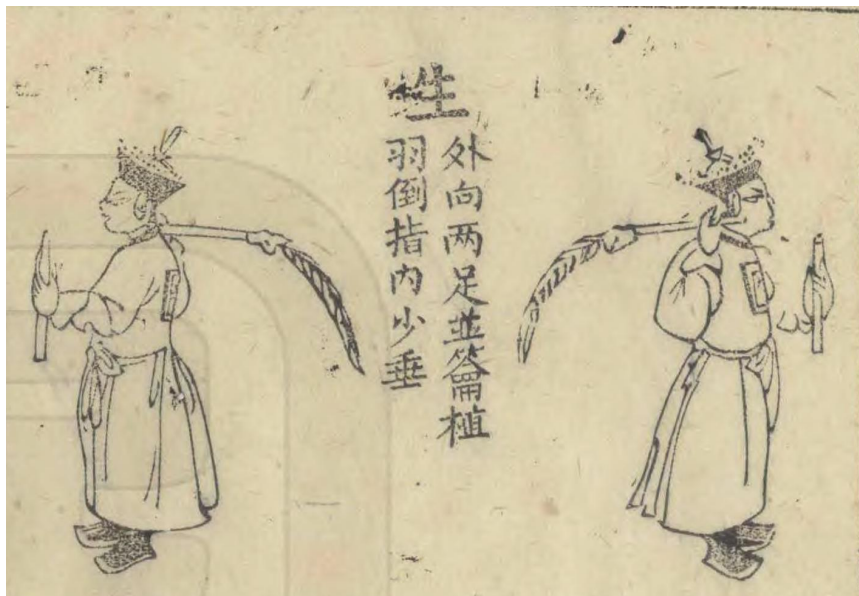 生
外向两足並籥植
羽倒指内少垂